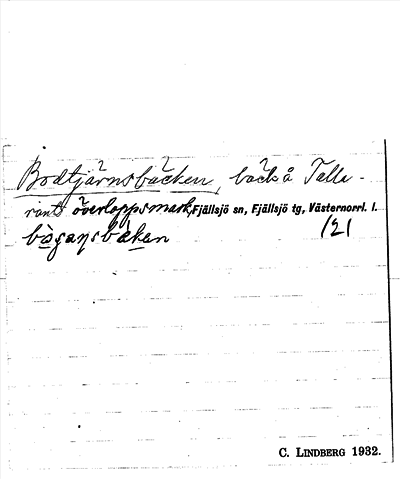 Bodtjärnsbäcken, bäck å Talle-
rånts överloppsmark, Fjällsjö sn, Fjällsjö tg, Västernorrl. l.
bò̱gaŋsbàkan 121
C. LINDBERG 1932.